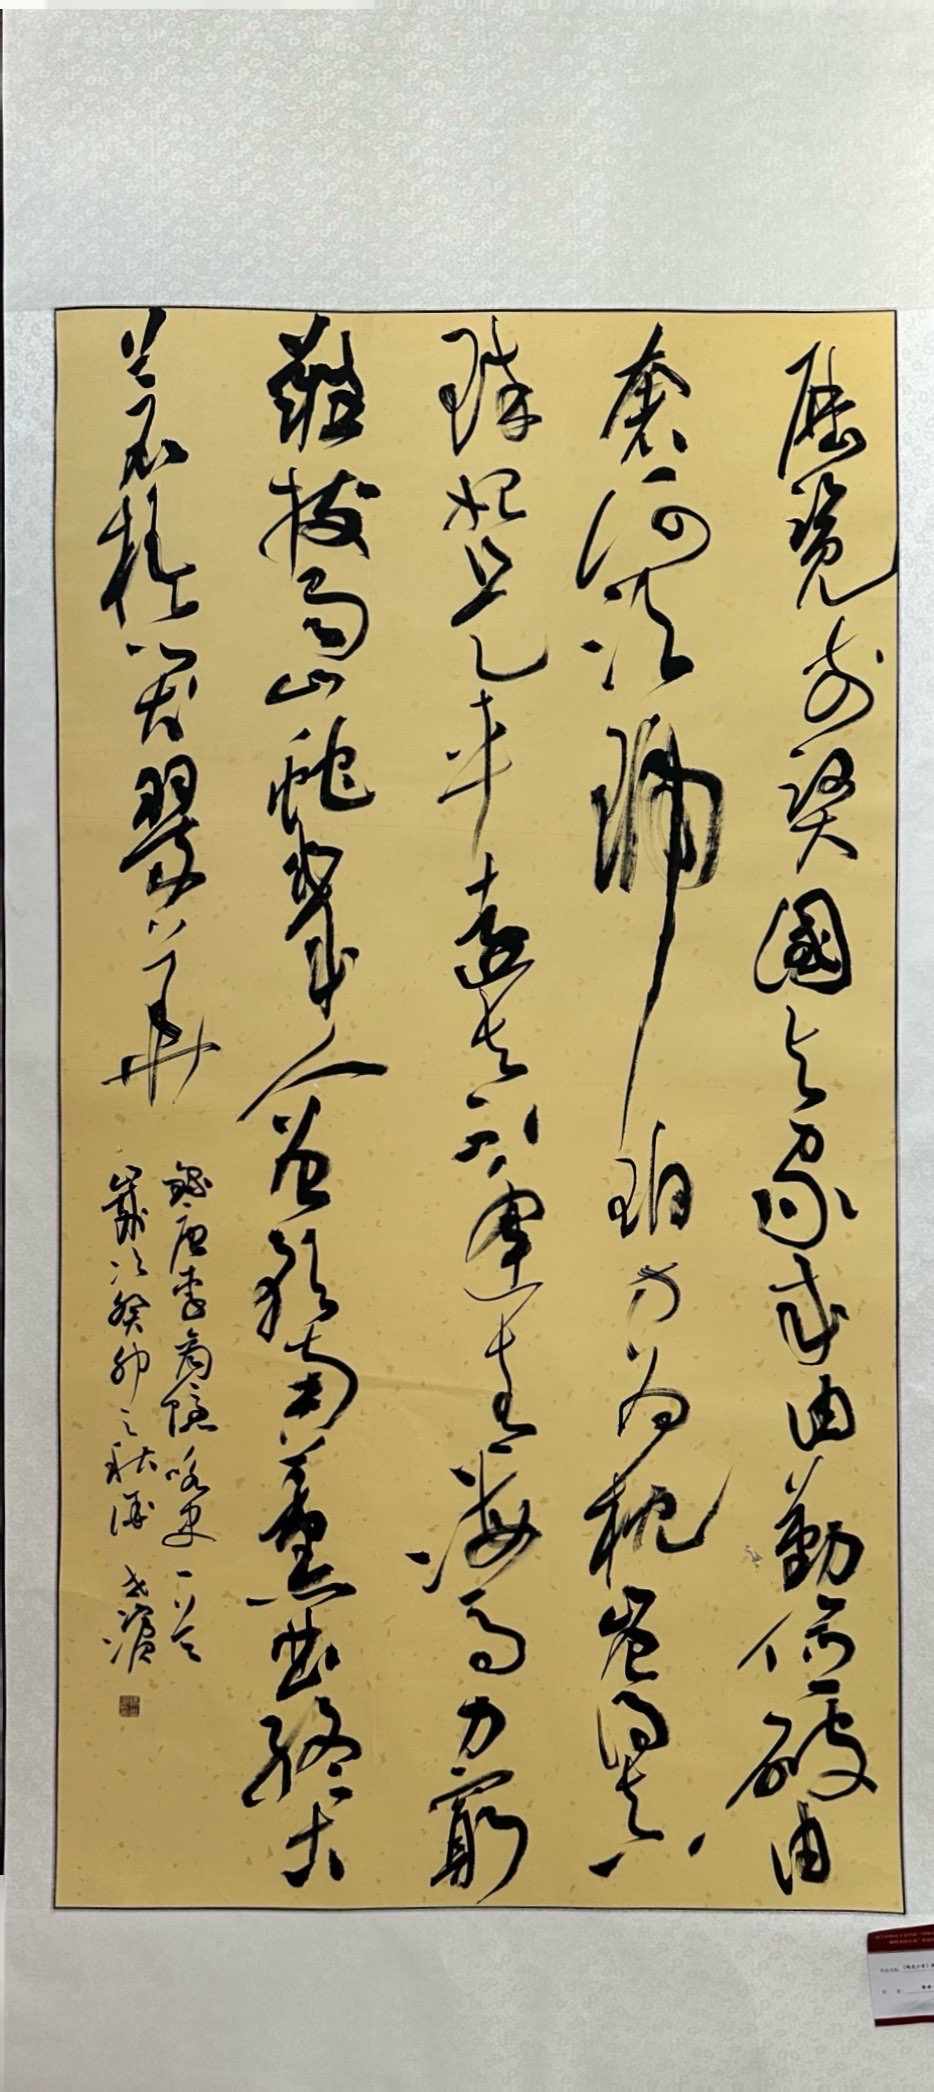 歷覽前賢國與家成由勤儉破由
奢何須琥珀方為枕豈得真
珠始是車遠去不逢青海馬力窮
難拔蜀山蛇幾人曾預南薰曲終古
蒼梧哭翠華
錄唐李商隱咏史一首
歲次癸卯之秋濱